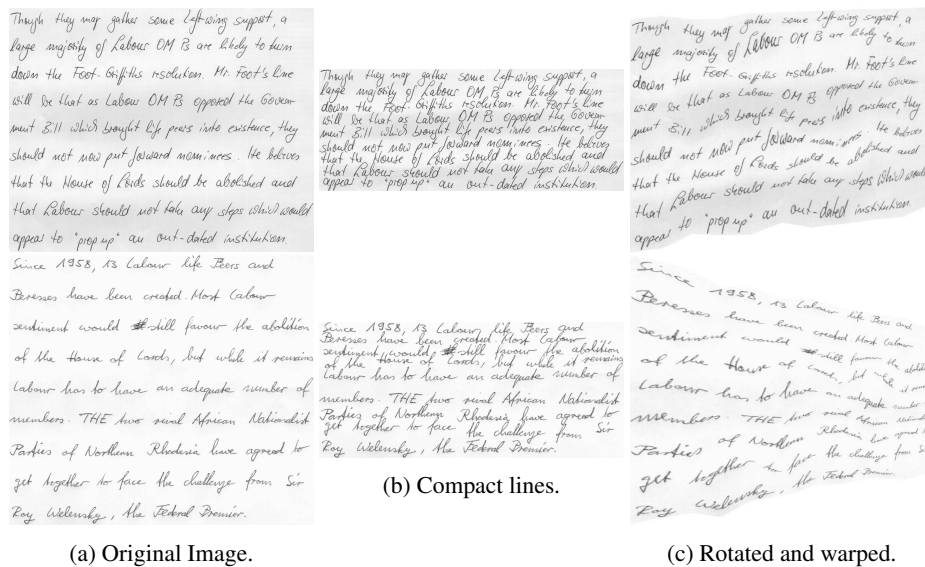 Though they may gather some Left-wing support, a
large majority of Labour OM Ps are likely to turn
down the Foot-Griffiths resolution. Mr. Foot's line
will be that as Labour OM Ps opposed the Govern-
ment Bill which brought life peers into existence, they
should not now put forward nominees. He believes
that the House of Lords should be abolished and
that Labour should not take any steps which would
appear to "prop up" an out-dated institution.
Since 1958, 13 Labour life Peers and
Peresses have been created. Most Labour
sentiment would still favour the abolition
of the House of Lords, but while it remains
Labour has to have an adequate number of
members. THE two rival African Nationalist
Parties of Northern Rhodesia have agreed to
get together to face the challenge from Sir
Roy Welensky, the Federal Premier.
(a) Original Image.
Though they may gather some Left-wing support, a
large majority of Labour OM Ps are likely to turn
down the Foot-Griffiths resolution. Mr. Foot's line
will be that as Labour OM Ps opposed the Govern-
ment Bill which brought life peers into existence, they
should not now put forward nominees. He believes
that the House of Lords should be abolished and
that Labour should not take any steps which would
appear to "prop up" an out-dated institution.
Since 1958, 13 Labour life Peers and
Peresses have been created. Most Labour
sentiment would still favour the abolition
of the House of Lords, but while it remains
Labour has to have an adequate number of
members. THE two rival African Nationalist
Parties of Northern Rhodesia have agreed to
get together to face the challenge from Sir
Roy Welensky, the Federal Premier.
(b) Compact lines.
Though they may gather some Left-wing support, a
large majority of Labour OM Ps are likely to turn
down the Foot-Griffiths resolution. Mr. Foot's line
will be that as Labour OM Ps opposed the Govern-
ment Bill which brought life peers into existence, they
should not now put forward nominees. He believes
that the House of Lords should be abolished and
that Labour should not take any steps which would
appear to "prop up" an out-dated institution.
Since 1958, 13 Labour life Peers and
Peresses have been created. Most Labour
sentiment would still favour the
of the House of Lords, but while it
Labour has to have an adequate number
members. THE two rival African
Parties of Northern Rhodesia have agreed
get together to face the challenge from
Roy Welensky, the Federal Premier.
(c) Rotated and warped.